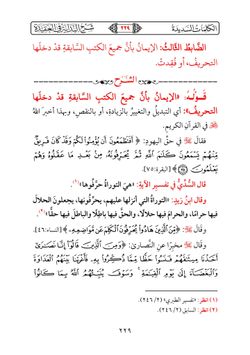 شرح البداية في العقيدة
٢٢٩
الكلمات السديدة
الضَّابِطُ الثَّالِثُ: الإيمانُ بأنَّ جميعَ الكتبِ السَّابقةِ قدْ دخلَها
التحريفُ، أو فُقِدتْ.
الشرح
قَولُـهُ: «الإيمانُ بأنَّ جميعَ الكتبِ السَّابقةِ قدْ دخلَها
التحريفُ»؛ أي التبديلُ والتغييرُ بالزيادةِ، أو بالنقصِ، وبهذا أخبرَ اللهُ
ﷻ في القرآنِ الكريمِ.
فقالَ ﷻ في حقِّ اليهودِ: ﴿أَفَتَطْمَعُونَ أَن يُؤْمِنُوا۟ لَكُمْ وَقَدْ كَانَ فَرِيقٌ
مِّنْهُمْ يَسْمَعُونَ كَلَٰمَ ٱللَّهِ ثُمَّ يُحَرِّفُونَهُۥ مِنۢ بَعْدِ مَا عَقَلُوهُ وَهُمْ
يَعْلَمُونَ ٧٥﴾ [البقرة: ٧٥].
قالَ السُّدِّيُّ في تفسيرِ الآيةِ: «هيَ التوراةُ حرَّفُوها»(١).
وقالَ ابنُ زيدٍ: «التوراةُ التي أنزلَها عليهِم، يحرِّفونَها، يجعلونَ الحلالَ
فيها حرامًا، والحرامَ فيها حلالًا، والحقَّ فيها باطلًا والباطلَ فيها حقًّا»(٢).
وقالَ ﷻ: ﴿مِّنَ ٱلَّذِينَ هَادُوا۟ يُحَرِّفُونَ ٱلْكَلِمَ عَن مَّوَاضِعِهِۦ﴾ [النساء: ٤٦].
وقالَ ﷻ مخبرًا عنِ النَّصارَى: ﴿وَمِنَ ٱلَّذِينَ قَالُوٓا۟ إِنَّا نَصَٰرَىٰٓ
أَخَذْنَا مِيثَٰقَهُمْ فَنَسُوا۟ حَظًّا مِّمَّا ذُكِّرُوا۟ بِهِۦ فَأَغْرَيْنَا بَيْنَهُمُ ٱلْعَدَاوَةَ
وَٱلْبَغْضَآءَ إِلَىٰ يَوْمِ ٱلْقِيَٰمَةِ ۚ وَسَوْفَ يُنَبِّئُهُمُ ٱللَّهُ بِمَا كَانُوا۟
(١) انظر: «تفسير الطبري» (٢/ ٢٤٦).
(٢) انظر: السابق (٢/ ٢٤٦).
٢٢٩